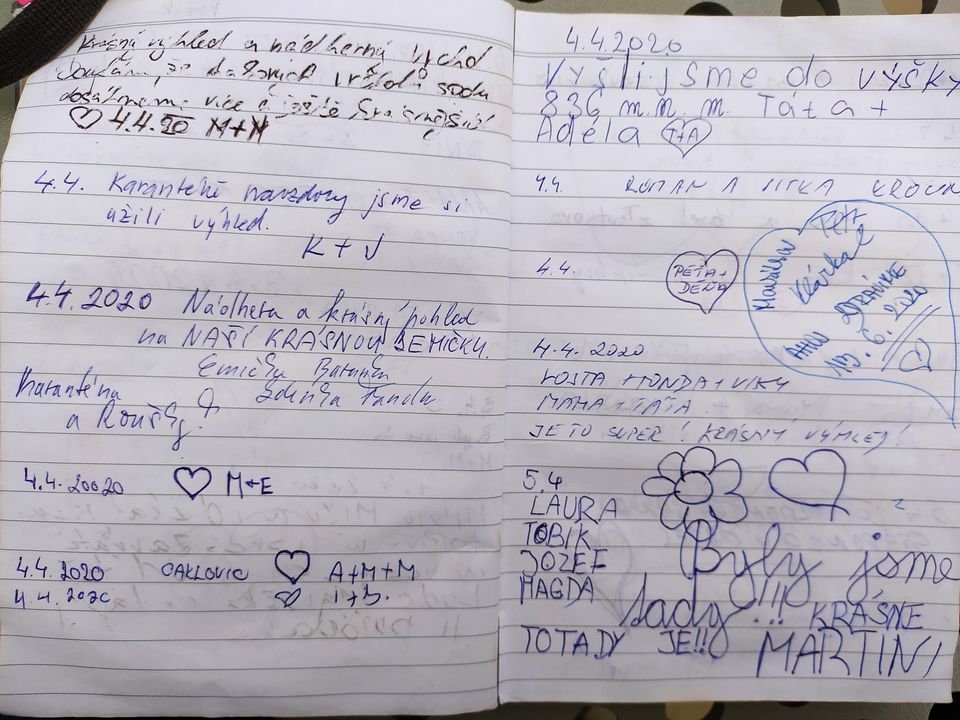 Krásný výhled a nádherný východ
více a ještě
4.4.20 M+M
4.4. Karanténě navzdory jsme si
užili výhled.
K + V
4.4.2020 Nádhera a krásný pohled
na NAŠÍ KRÁSNOU ZEMIČKU.
Emička Baranka
Zdenka Fanda
Karanténa
a Roušky?
4.4.20020 M+E
4.4.2020 OAKLOVIC A+M+M
4.4.2020 I+B.
4.4.2020
Vyšli jsme do výšky
836 m.n.m. Táta +
Adéla T+A
4.4. ROMAN A JITKA
4.4. PÉŤA + DENA
Petr
Klárka
AHOJ
13.6.2020
4.4.2020
LOJTA + HONDA + VIKY
MAMA + TÁTA
JE TO SUPER! KRÁSNÝ VÝHLED!
5.4
LAURA
TOBÍK
JOZEF
MAGDA
TO TADY JE!!
Byly jsme
tady!!! KRÁSNE
MARTINI